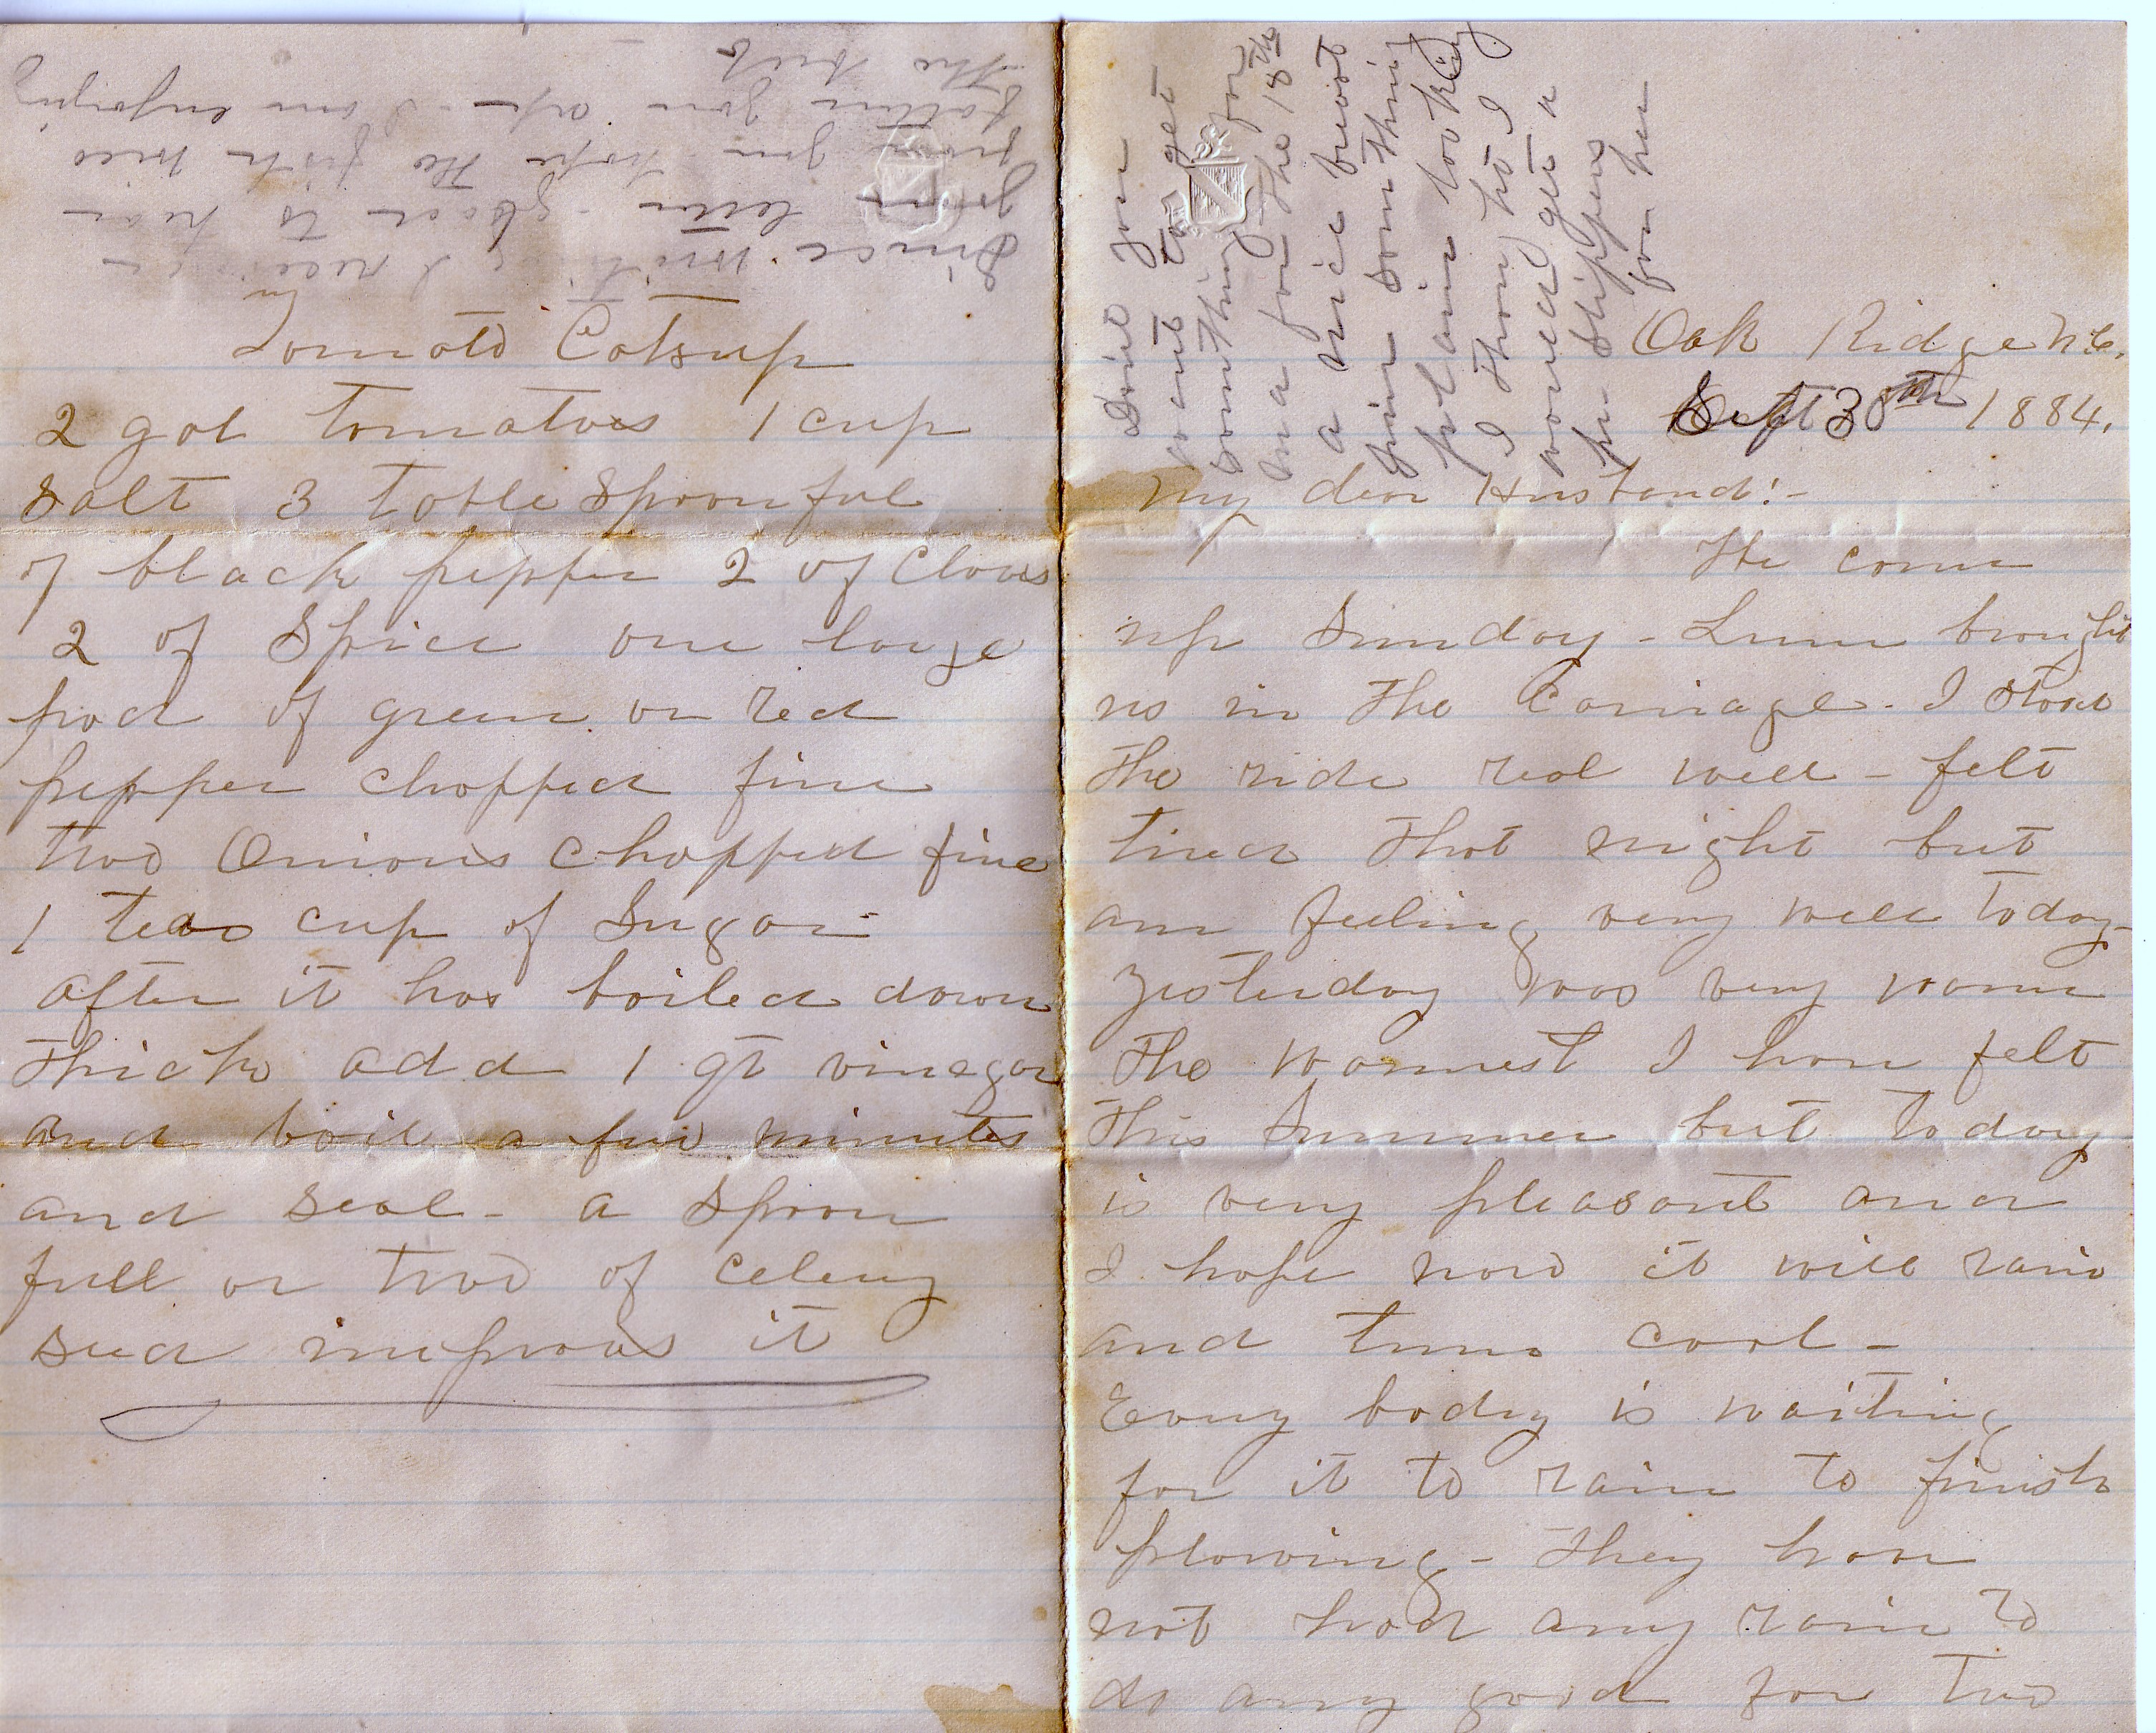 Since writing I receiv
your letter - glad to hear
from you hope the fish will
fatten you up - I am enjoying
the rest
Tomato Catsup
2 gal tomatoes 1 cup
salt 3 table spoonful
of black pepper 2 of Cloves
2 of Spice one large
pod of green or red
pepper chopped fine
two Onions chopped fine
1 tea cup of Sugar-
after it has boiled down
thick add 1 qt vinegar
and boil a few minutes
and seal - a spoon
full or two of celery
seed improves it
Dont you
want to get
something for
ma for the 18th
a nice breast
pin something
plain looking
I
would get a
pr slippers
for her
Oak Ridge N.C.
Sept 30th 1884.
My dear Husband!-
We come
up Sunday - Lum brought
us in the Carriage - I stood
the ride real well - felt
tired that night but
am feeling very well today-
Yesterday was very warm
the warmest I have felt
this Summer but today
is very pleasant and
I hope now it will rain
and turn cool -
Every body is waiting
for it to rain to finish
plowing - They have
not had any rain to
do any good for two